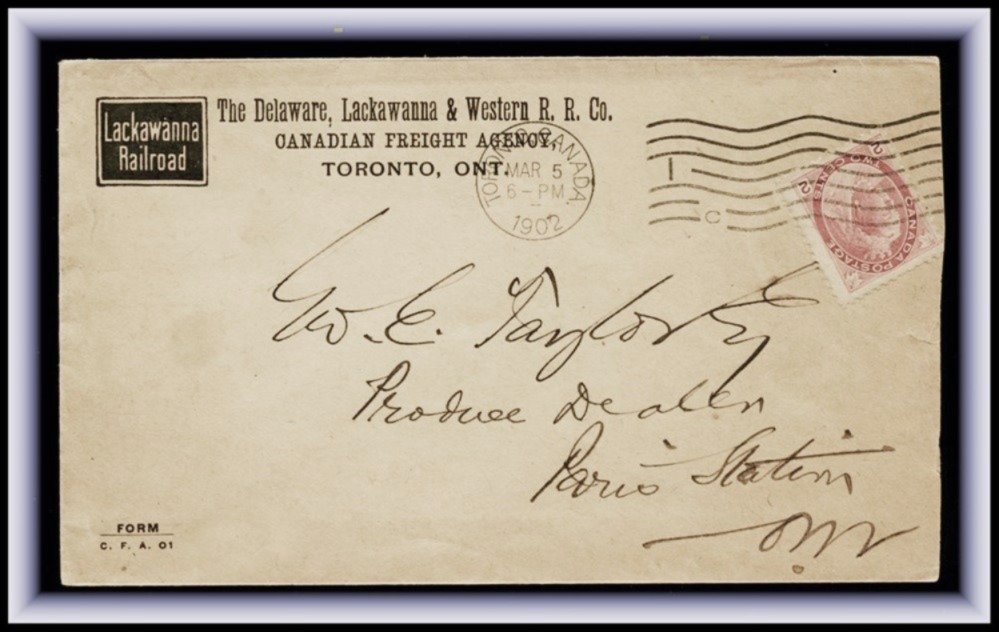 Lackawanna
Railroad
The Delaware, Lackawanna & Western R. R. Co.
CANADIAN FREIGHT AGENCY,
TORONTO, ONT.
TORONTO, CANADA.
MAR 5
6 - PM
1902
I
C
2
TWO CENTS
2
CANADA POSTAGE
Geo. C. Taylor Esq
Produce Dealer
Paris Station
Ont
FORM
C. F. A. 01